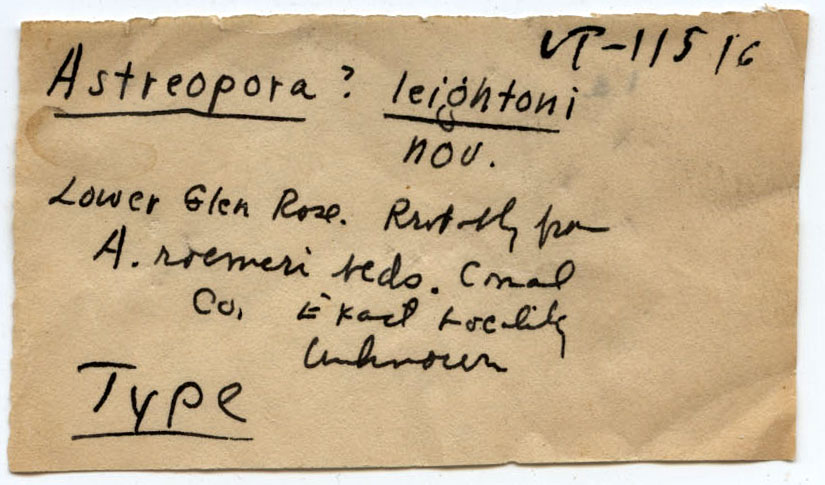 UT-11516
Astreopora? leightoni
nov.
Lower Glen Rose. Probably from
A. roemeri beds. Comal
Co. Exact Locality
Unknown
Type